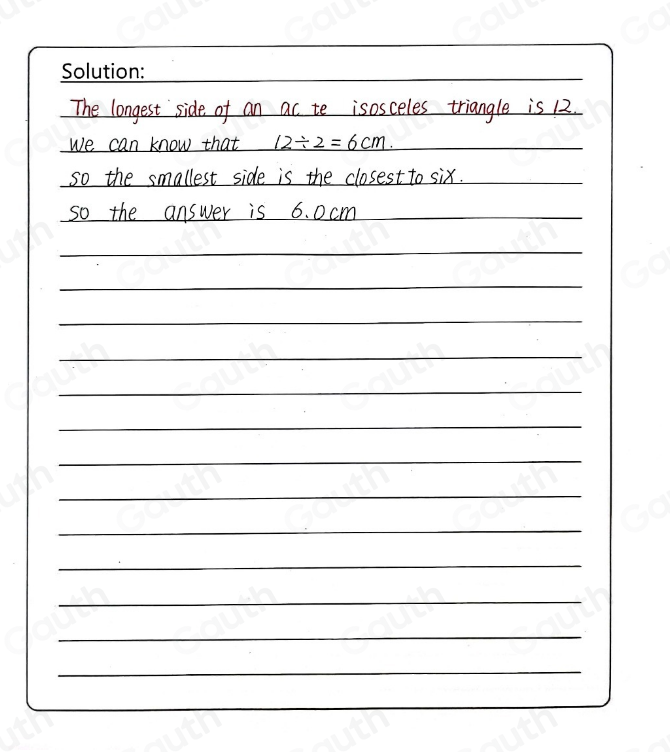 Solution:
The longest side of an ac te isosceles triangle is 12.
We can know that 12÷2=6cm.
so the smallest side is the closest to six.
so the answer is 6.0cm